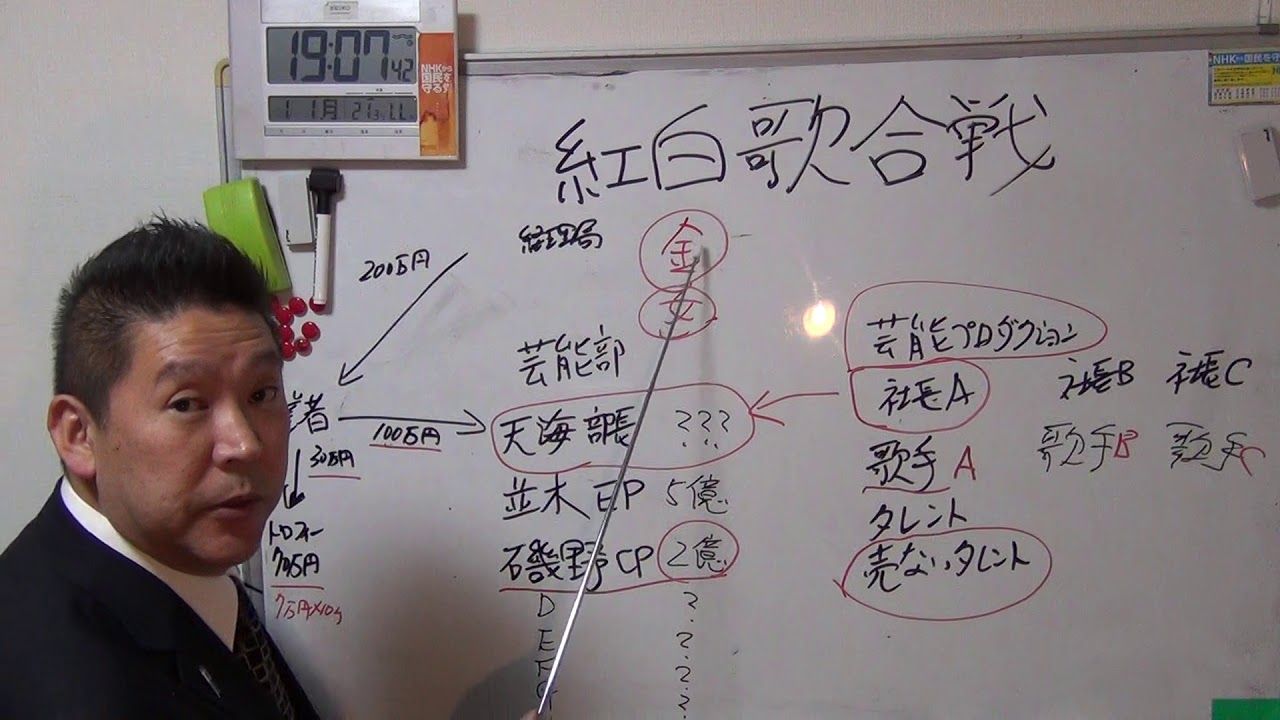 SEIKO
19:07 42
11月 21
NHKから
国民を
守る
NHKから国民を
紅白歌合戦
経理局
金
女
200万円
芸能部
者
100万円
天海部長 ???
30万円
並木EP 5億
トロフィー
7万円
磯野CP 2億
7万円×10
D ?
E ?
F ?
G ?
芸能プロダクション
社長A 社長B 社長C
歌手A 歌手B 歌手C
タレント
売ないタレント